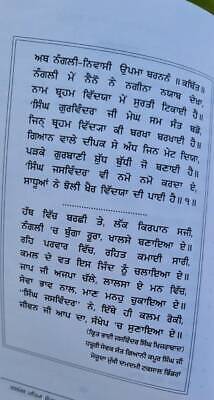 ਅਥ ਨੰਗਲੀ-ਨਿਵਾਸੀ ਉਪਮਾ ਬਰਨਨੰ ॥ ਕਬਿੱਤ ॥
ਨੰਗਲੀ ਮੇਂ ਨੈਨੋਂ ਨੇ ਨਗੀਨਾ ਨਯਾਬ ਦੇਖਾ,
ਨਾਮ ਬ੍ਰਹਮ ਵਿੱਦਯਾ ਮੇਂ ਸੁਰਤੀ ਟਿਕਾਈ ਹੈ।
'ਸਿੰਘ ਗੁਰਵਿੰਦਰ' ਜੀ ਮੇਘ ਸਮ ਸੰਤ ਬਡੇ,
ਜਿਨ੍ਹ ਬ੍ਰਹਮ ਵਿੱਦਯਾ ਕੀ ਬਰਖਾ ਬਰਖਾਈ ਹੈ।
ਗਿਆਨ ਵਾਲੇ ਦੀਪਕ ਸੇ ਅੰਧ ਜਿਨ ਮੇਟ ਦਿਯਾ,
ਪੜਕੇ ਗੁਰਬਾਣੀ ਬੁੱਧ ਬੁੱਧੀ ਜੋ ਬਣਾਈ ਹੈ।
'ਸਿੰਘ ਜਸਵਿੰਦਰ' ਵੀ ਨਮੋ ਨਮੋ ਕਰਦਾ ਏ,
ਸਾਧੂਆਂ ਨੇ ਝੋਲੀ ਖ਼ੈਰ ਵਿੱਦਯਾ ਦੀ ਪਾਈ ਹੈ ॥੧॥
ਹੱਥ ਵਿੱਚ ਬਰਛੀ ਤੇ, ਲੱਕ ਕਿਰਪਾਨ ਸਜੀ,
ਨੰਗਲੀ 'ਚ ਬੁੰਗਾ ਬੂਰਾ, ਖਾਲਸੇ ਬਣਾਇਆ ਏ।
ਰਹਿ ਪਰਵਾਰ ਵਿੱਚ, ਰਹਿਤ ਕਮਾਈ ਸਾਰੀ,
ਕਮਲ ਦੇ ਵਤ ਇਸ ਜਿੰਦ ਨੂੰ ਚਲਾਇਆ ਏ।
ਜਾਪ ਜੀ ਅਜਪਾ ਚੱਲੇ, ਲਾਲਸਾ ਏ ਮਨ ਵਿੱਚ,
ਸੇਵਾ ਭਾਵ ਨਾਲ, ਮਾਣ ਮਨਹੁ ਚੁਕਾਇਆ ਏ।
"ਸਿੰਘ ਜਸਵਿੰਦਰ" ਨੇ, ਇੱਥੇ ਹੀ ਕਲਮ ਰੋਕੀ,
ਜੀਵਨ ਜੀ ਆਪ ਦਾ, ਸੰਖੇਪ 'ਚ ਸੁਣਾਇਆ ਏ।
(ਕ੍ਰਿਤ ਭਾਈ ਜਸਵਿੰਦਰ ਸਿੰਘ ਖਿਜ਼ਰਾਬਾਦ)
ਹਜ਼ੂਰੀ ਸੇਵਕ ਸੰਤ ਗਿਆਨੀ ਕਪੂਰ ਸਿੰਘ ਜੀ
ਸੰਪ੍ਰਦਾ ਮੁੱਖੀ ਦਮਦਮੀ ਟਕਸਾਲ ਭਿੰਡਰਾਂ